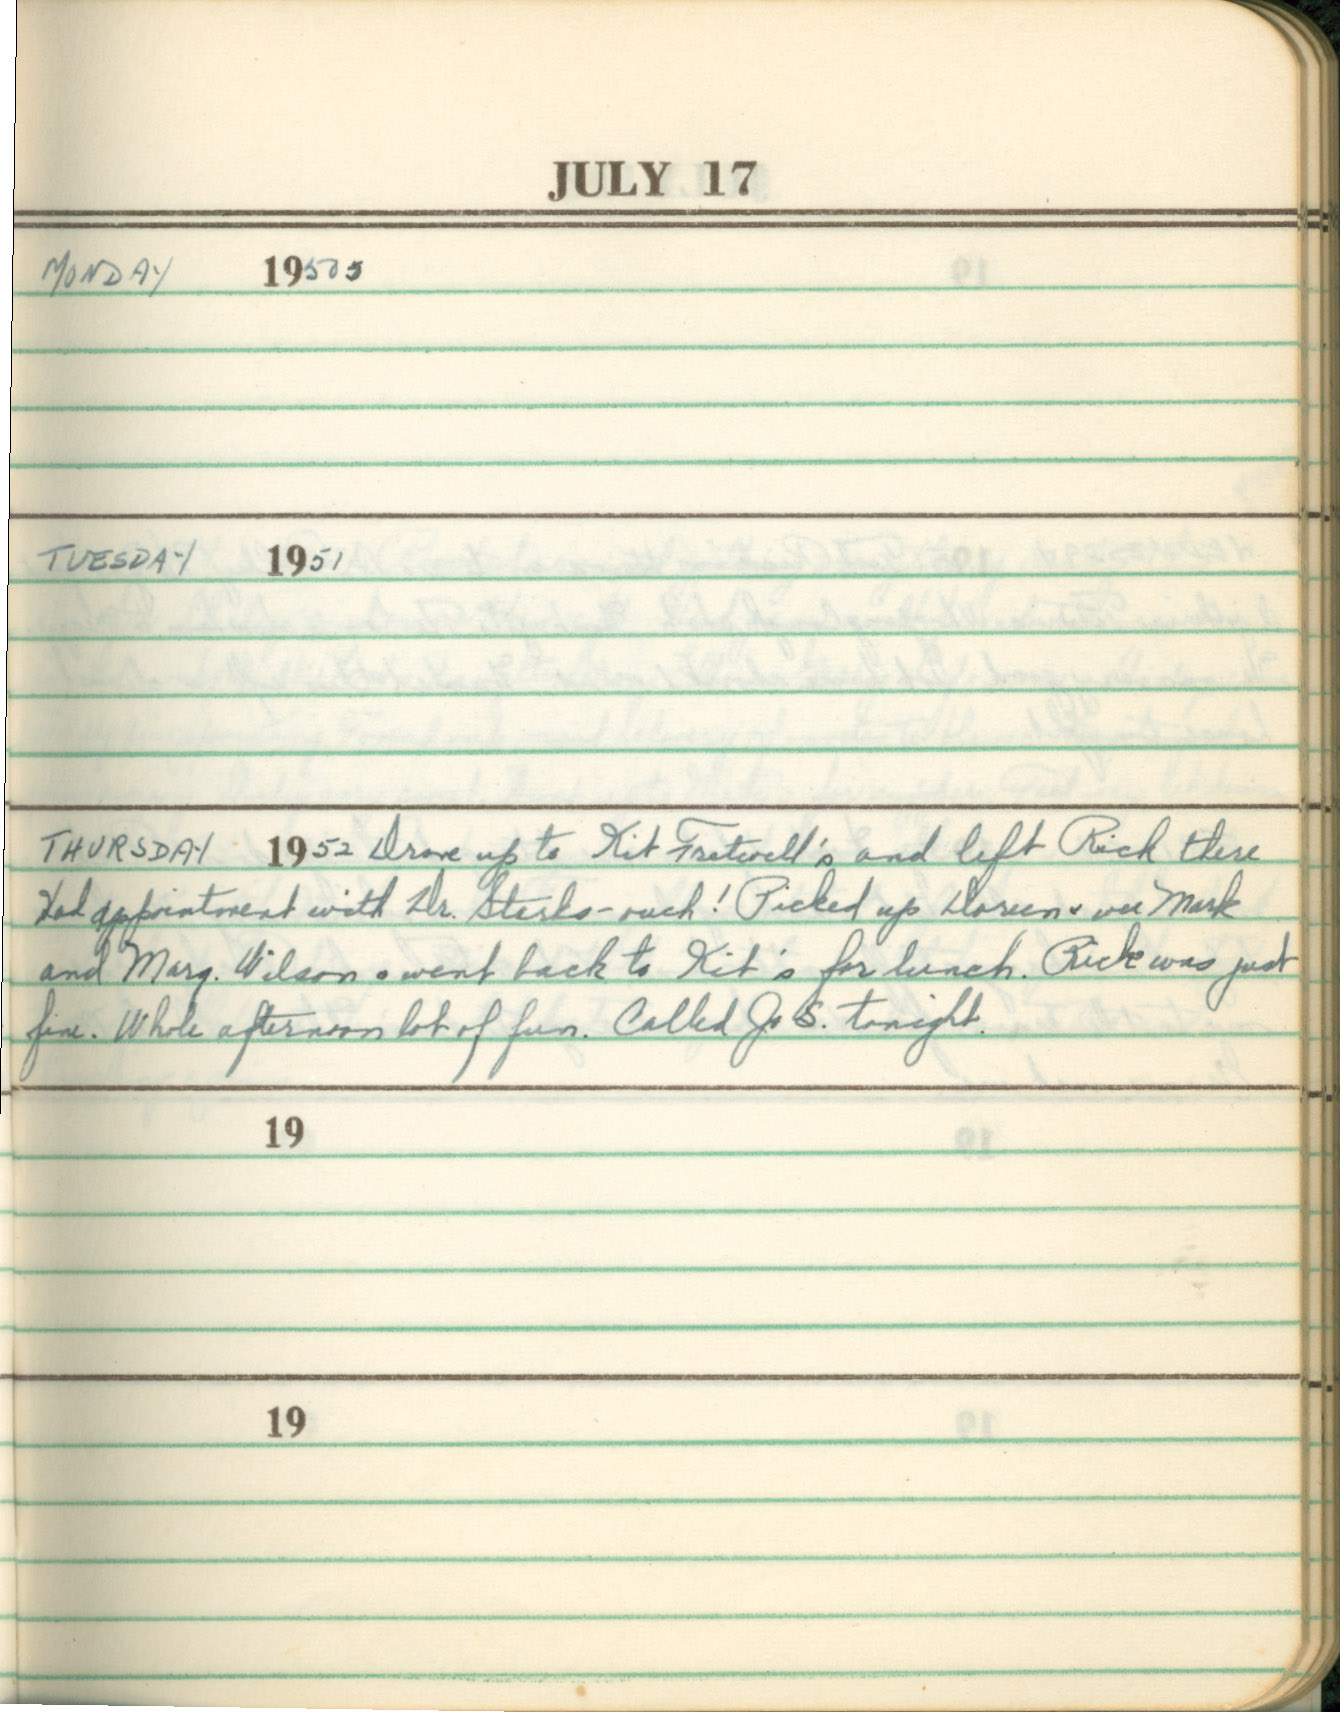 JULY 17
MONDAY 19505
TUESDAY 1951
THURSDAY 1952 Drove up to Kit Fretwell's and left Rick there
Had appointment with Dr. Starks - ouch! Picked up Doreen & wee Mark
and Marg. Wilson & went back to Kit's for lunch. Rick was just
fine. Whole afternoon lot of fun. Called Jo S. tonight.
19
19